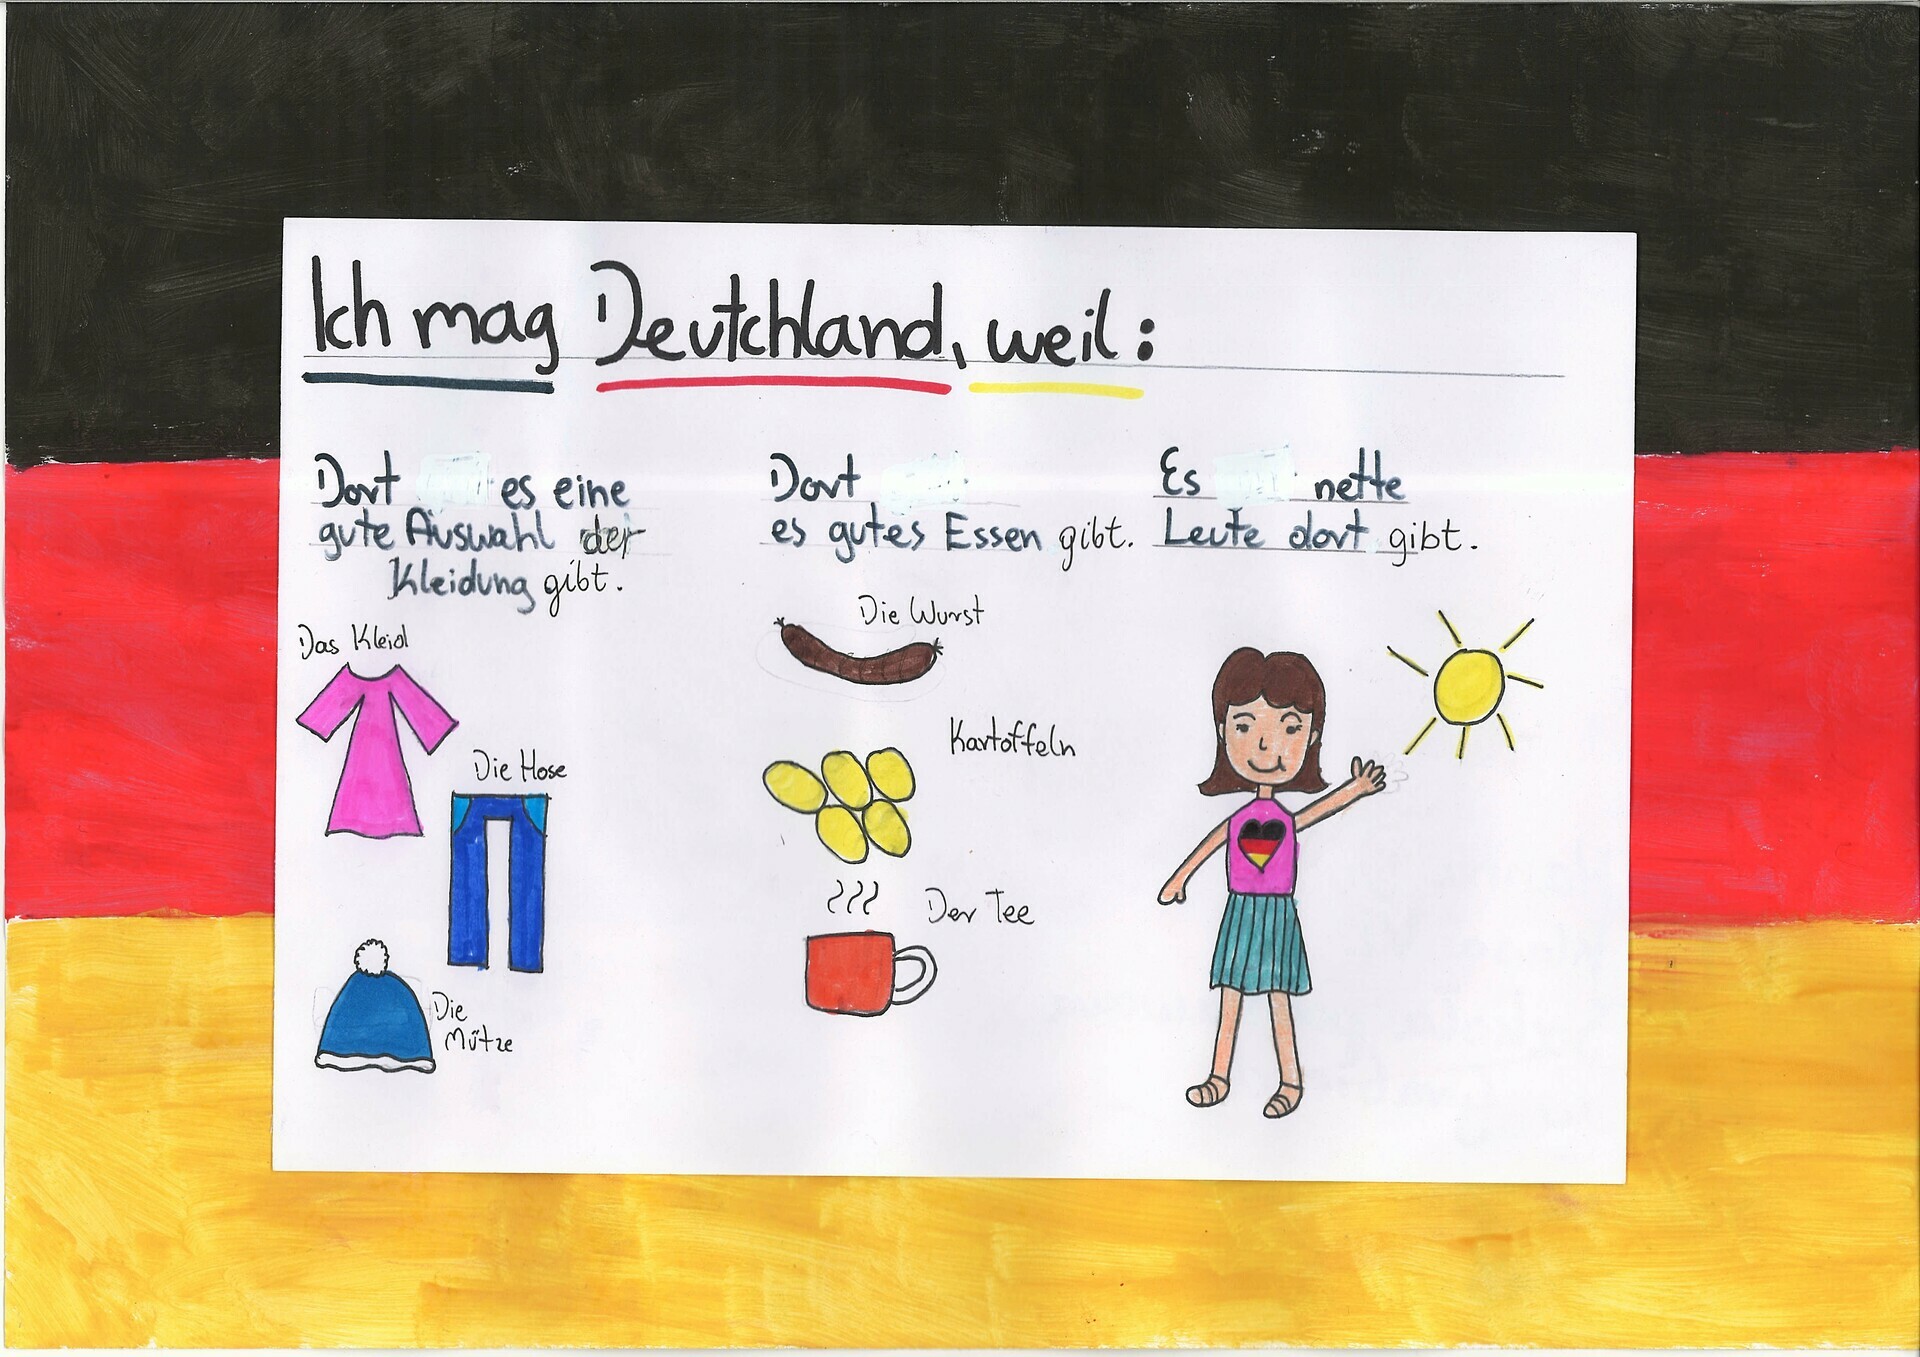 Ich mag Deutchland, weil:
Dort es eine
gute Auswahl der
Kleidung gibt.
Das Kleid
Die Hose
Die
Mütze
Dort
es gutes Essen gibt.
Die Wurst
Kartoffeln
Der Tee
Es nette
Leute dort gibt.